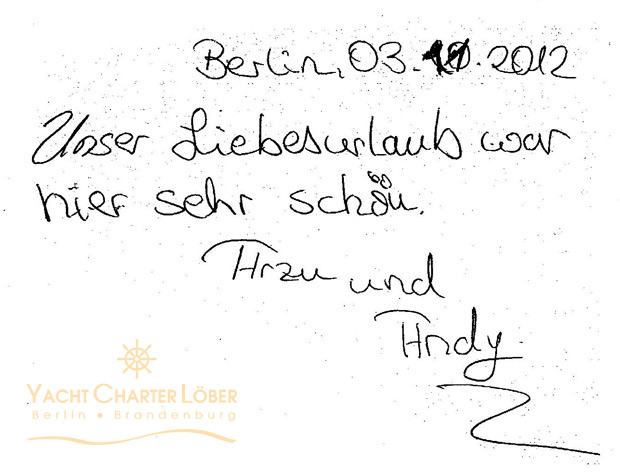 Berlin, 03.10.2012
Unser Liebesurlaub war
hier sehr schön.
Arzu und
Andy
YACHT CHARTER LÖBER
Berlin • Brandenburg